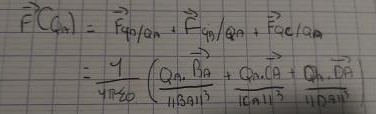 F⃗(QA) = F⃗QD/QA + F⃗QB/QA + F⃗QC/QA
= 1/4πε0 ( QA.B⃗A⃗/||BA||³ + QA.C⃗A⃗/||CA||³ + QA.D⃗A⃗/||DA||³ )